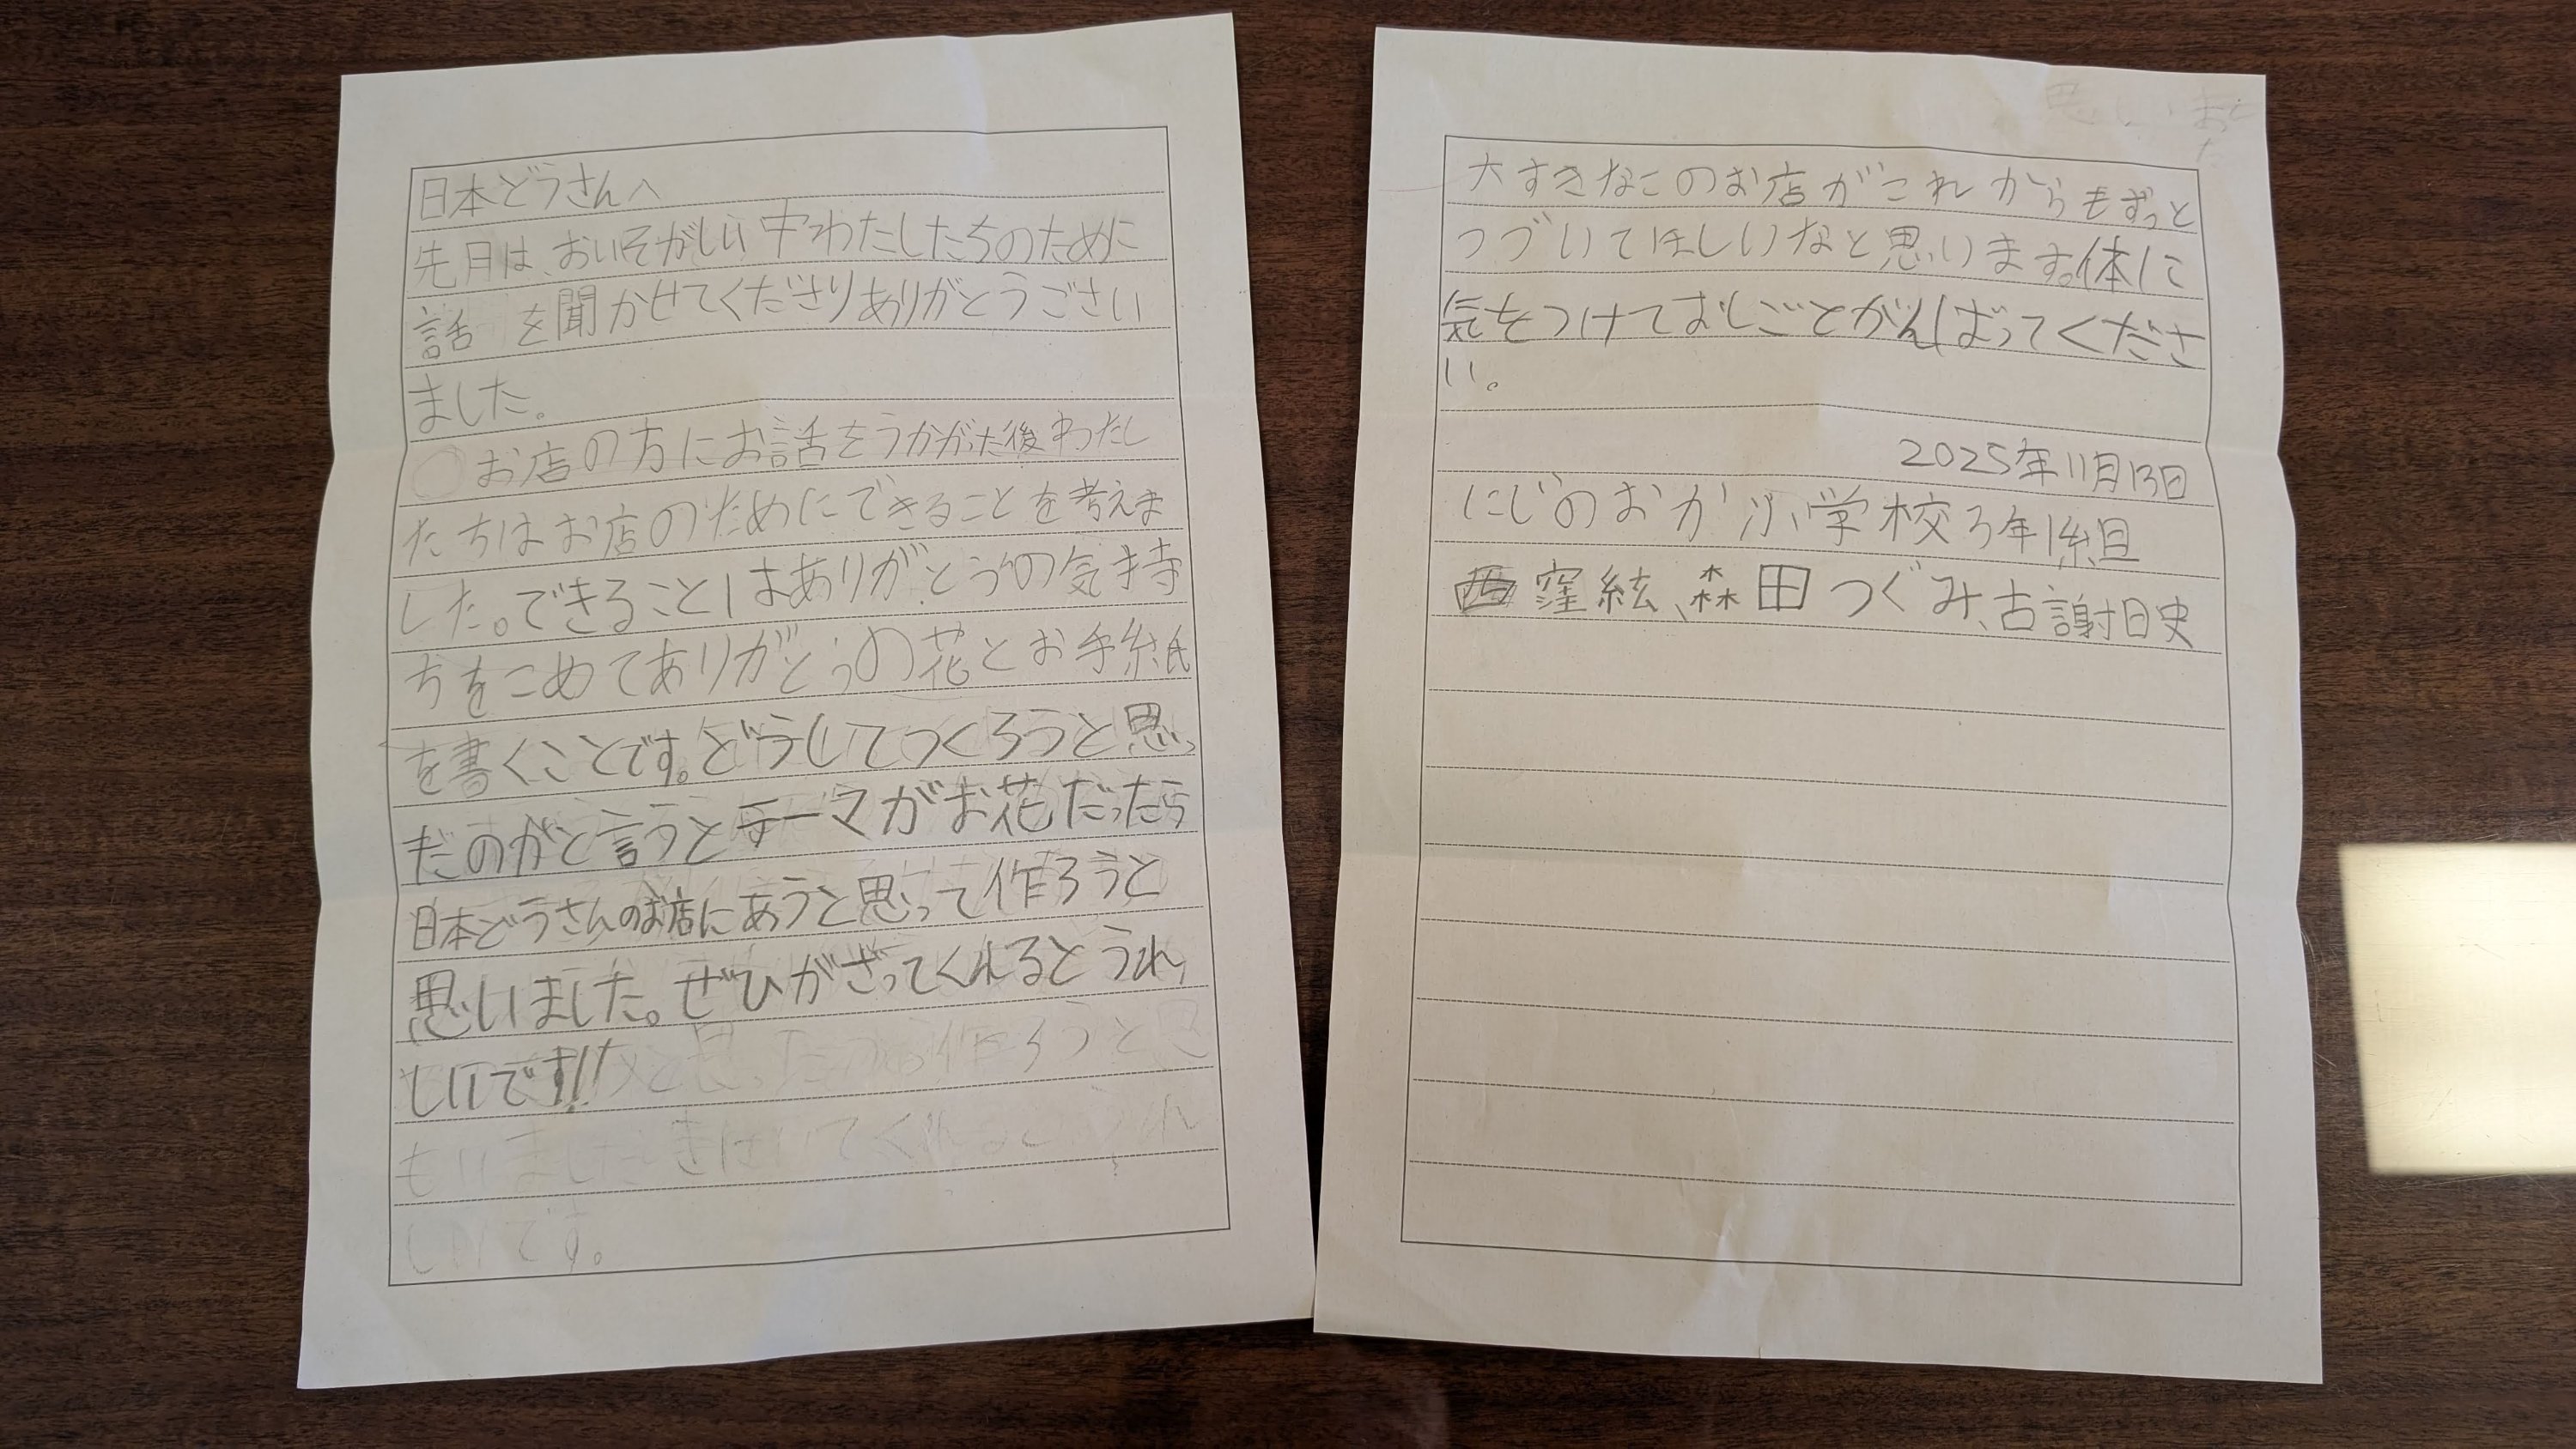 日本どうさんへ
先月は、おいそがしい中わたしたちのために
話を聞かせてくださりありがとうごさい
ました。
お店の方にお話をうかがった後わたし
たちはお店のためにできることを考えま
した。できることはありがとうの気持
ちをこめてありがとうの花とお手紙
を書くことです。どうしてつくろうと思っ
だのがと言うとテーマがお花だったら
日本どうさんのお店にあうと思って作ろうと
思いました。ぜひがざってくれるとうれ
しいです!!
しいです。
大すきなこのお店がこれからもずっと
つづいてほしいなと思います。体に
気をつけておしごとがんばってくださ
い。
2025年11月13日
にじのおか小学校3年1組
西窪絃、森田つぐみ、古謝日史